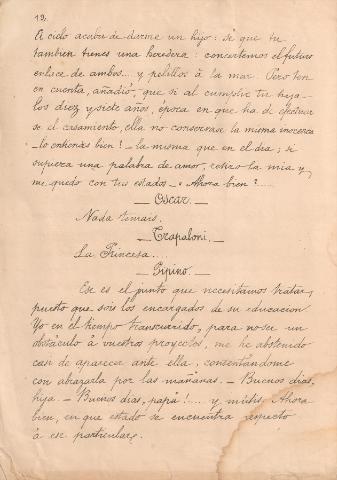 12.
A cielo acaba de darme un hijo: sé que tu
tambien tienes una heredera: concertemos el futuro
enlace de ambos... y pelillos à la mar. Pero ten
en cuenta, añadió, que si al cumplir tu hija
los diez y siete años, época en que ha de efectuar
se el casamiento, ella no conservase la misma inocencia
lo entiendes bien? - la misma que en el dia; si
supiera una palabra de amor, retiro la mia y
me quedo con tus estados - Ahora bien?.....
— Oscar. —
Nada temais.
— Trapaloni. —
La Princesa....
— Pipino. —
Ese es el punto que necesitamos tratar,
puesto que sois los encargados de su educacion
Yo en el tiempo transcurrido, para no ser un
obstáculo à vuestros proyectos, me he abstenido
casi de aparecer ante ella, contentandome
con abrazarla por las mañanas. - Buenos dias,
hija - Buenos dias, papá!..... y mutis. Ahora
bien, en que estado se encuentra respecto
à ese particular.